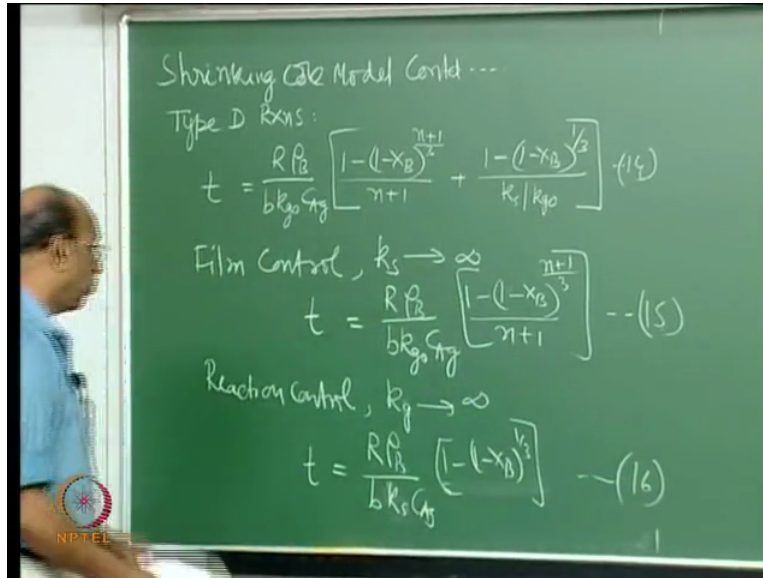 Shrinking Core Model Contd ....
Type D Rxns:
t = Rρ_B / (b k_g0 C_Ag) [ (1-(1-x_B)^((n+1)/3)) / (n+1) + (1-(1-x_B)^(1/3)) / (k_s/k_g0) ] -(14)
Film Control, k_s → ∞
t = Rρ_B / (b k_g0 C_Ag) [ (1-(1-x_B)^((n+1)/3)) / (n+1) ] --(15)
Reaction Control, k_g → ∞
t = Rρ_B / (b k_s C_Ag) [1-(1-x_B)^(1/3)] --(16)
NPTEL